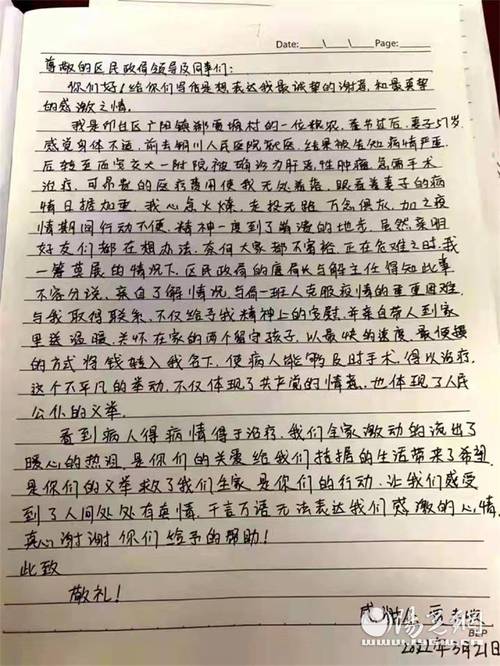 Date: Page:
尊敬的区民政局领导及同事们：
你们好！给你们写信是想表达我最诚挚的谢意和最真挚
的感激之情。
我是印台区广阳镇郝贾塬村的一位农，春节过后，妻子57岁
感觉身体不适，前去铜川人民医院就医，结果被告知病情严重，
后转至西安交大一附院被确诊为肝恶性肿瘤，急需手术
治疗，可昂贵的医疗费用使我无处着落，眼看着妻子的病
情日渐加重，我心急火燎，走投无路，万念俱灰，加之疫
情期间行动不便，精神一度到了崩溃的地步。虽然亲朋
好友们都在想办法，奈何大家都不富裕，正在危难之时，我
一筹莫展的情况下，区民政局的局长与解主任得知此事
不容分说，亲自了解情况，与局一班人克服疫情的重重困难
与我取得联系，不仅给予我精神上的宽慰，并亲自带人到家
里送温暖，关怀在家的两个留守孩子，以最快的速度，最便捷
的方式将钱转入我名下，使病人能够及时手术，得以治疗，
这个不平凡的举动，不仅体现了共产党的情意，也体现了人民
公仆的义举。
看到病人得病情得于治疗，我们全家激动的流出了
暖心的热泪，是你们的关爱给我们拮据的生活带来了希望，
是你们的义举救了我们全家，是你们的行动，让我们感受
到了人间处处有真情，千言万语无法表达我们感激的心情，
真心谢谢你们给予的帮助！
此致
敬礼！
感激人
BLP
2022年3月21日